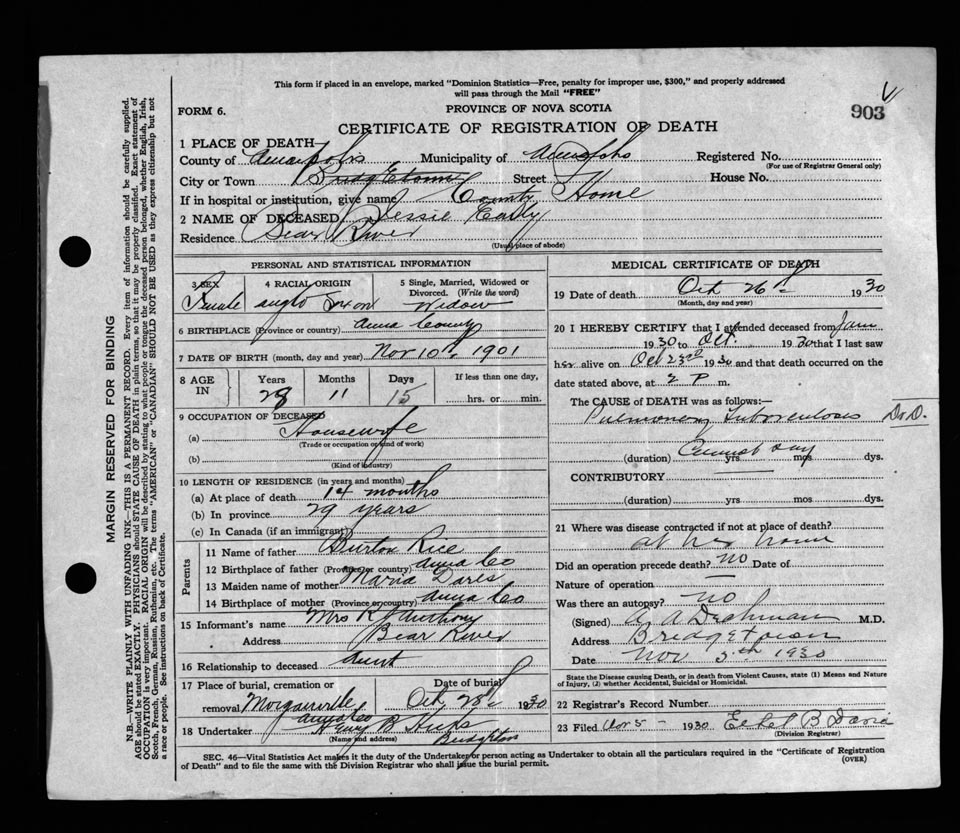 This form if placed in an envelope, marked "Dominion Statistics—Free, penalty for improper use, $300," and properly addressed
will pass through the Mail "FREE"
FORM 6.
PROVINCE OF NOVA SCOTIA
903
CERTIFICATE OF REGISTRATION OF DEATH
1 PLACE OF DEATH—
County of Annapolis Municipality of Annapolis Registered No.
(For use of Registrar General only)
City or Town Bridgetown Street House No.
If in hospital or institution, give name County Home
2 NAME OF DECEASED Jessie
Residence Bear River
(Usual place of abode)
PERSONAL AND STATISTICAL INFORMATION
3 SEX 4 RACIAL ORIGIN 5 Single, Married, Widowed or Divorced. (Write the word)
Female anglo Saxon Widow
6 BIRTHPLACE (Province or country) Anna County
7 DATE OF BIRTH (month, day and year) Nov 10th 1901
8 AGE IN Years Months Days If less than one day,
28 11 15 hrs. or min.
9 OCCUPATION OF DECEASED
(a) Housewife
(Trade or occupation or kind of work)
(b)
(Kind of industry)
10 LENGTH OF RESIDENCE (in years and months)
(a) At place of death 14 months
(b) In province 29 years
(c) In Canada (if an immigrant)
Parents
11 Name of father Burton Rice
12 Birthplace of father (Province or country) Anna Co
13 Maiden name of mother Maria Dares
14 Birthplace of mother (Province or country) Anna Co
15 Informant's name Mrs R Anthony
Address Bear River
16 Relationship to deceased Aunt
17 Place of burial, cremation or removal Date of burial
Morganville Oct 28th 1930
Anna Co
18 Undertaker Henry B Hicks
(Name and address)
MEDICAL CERTIFICATE OF DEATH
19 Date of death Oct 26th 1930
(Month, day and year)
20 I HEREBY CERTIFY that I attended deceased from Jan
1930 to Oct. 1930 that I last saw
her alive on Oct 23rd 1930 and that death occurred on the
date stated above, at 2 P m.
The CAUSE of DEATH was as follows:—
Pulmonary Tuberculosis Dr D.
(duration) Cannot say yrs mos dys.
CONTRIBUTORY
(duration) yrs mos dys.
21 Where was disease contracted if not at place of death?
at her home
Did an operation precede death? no Date of
Nature of operation —
Was there an autopsy? no
(Signed) A A Dechman M.D.
Address Bridgetown
Date Nov 5th 1930
State the Disease causing Death, or in death from Violent Causes, state (1) Means and Nature of Injury, (2) whether Accidental, Suicidal or Homicidal.
22 Registrar's Record Number
23 Filed Nov 5 - 1930 Ethel B
(Division Registrar)
SEC. 46—Vital Statistics Act makes it the duty of the Undertaker or person acting as Undertaker to obtain all the particulars required in the "Certificate of Registration
of Death" and to file the same with the Division Registrar who shall issue the burial permit.
(OVER)
MARGIN RESERVED FOR BINDING
N.B.—WRITE PLAINLY WITH UNFADING INK—THIS IS A PERMANENT RECORD. Every item of information should be carefully supplied.
AGE should be stated EXACTLY. PHYSICIANS should STATE CAUSE OF DEATH in plain terms, so that it may be properly classified. Exact statement of
OCCUPATION is very important. RACIAL ORIGIN will be described by stating to what people or tongue the deceased person belonged, whether English, Irish,
Scotch, French, German, Russian, Ruthenian, etc. The terms "AMERICAN" or "CANADIAN" SHOULD NOT BE USED as they express citizenship but not
a race or people. See instructions on back of Certificate.